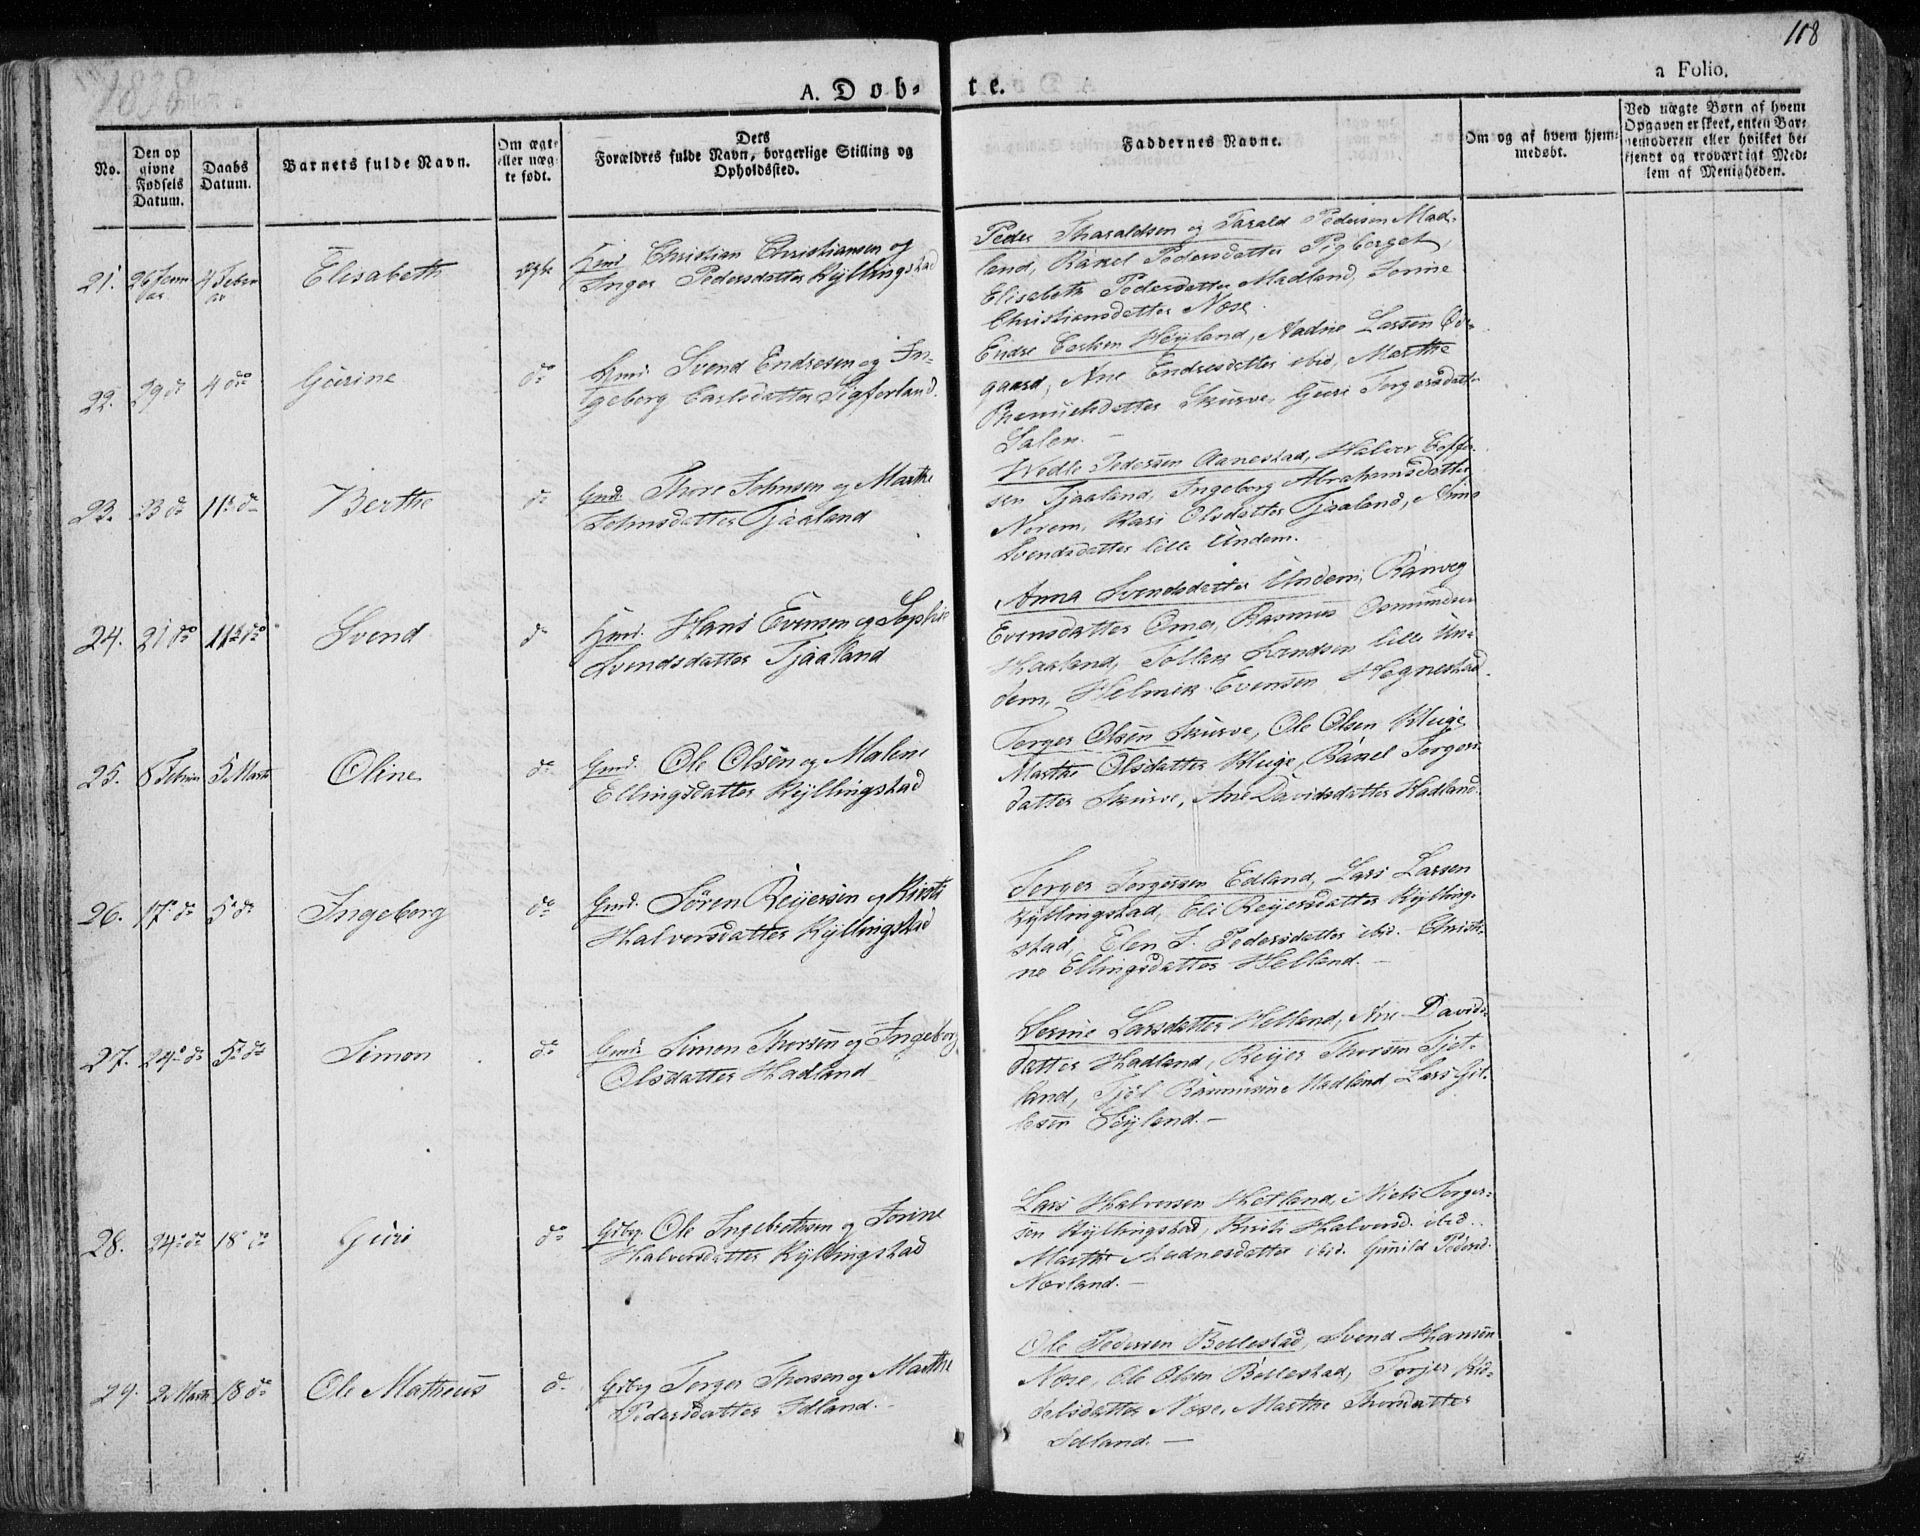 1838
118
A. Døb-
te.
a Folio.
No.
Den op
givne
Fødsels
Datum.
Daabs
Datum.
Barnets fulde Navn.
Om ægte
eller uæg-
te født.
Dets
Forældres fulde Navn, borgerlige Stilling og
Opholdssted.
Faddernes Navne.
Om og af hvem hjem-
medøbt.
Ved uægte Børn af hvem
Opgaven er skeet, enten Bar-
nemoderen eller hvilket be-
kjendt og troværdigt Med-
lem af Menigheden.
21. 26 Janu
ar
4 Febru
ar
Elisabeth
ægte
Christian Christiansen og
Inger Pedersdatter Kyllingstad
Peder Tharaldsen og Tarald Pedersen Mad-
land, Rakel Pedersdatter Pigberget
Elisabeth Pedersdatter Madland, Jorine
Christiansdatter Nose.
22. 29 do 4 do
Gurine
do
Svend Endresen og In-
geborg Carlsdatter Sigforland.
Endre Høyland, Aadne Larsen
gaard, Ane Endresdatter ibid, Marthe
Skurve, Guri Torgersdatter
Salen.
23. 23 do 11te do
Berthe
do
Gmd. Thore Johnsen og Marthe
Johnsdatter Tjaaland
Pedersen Aanestad, Halver
sen Tjaaland, Ingeborg Abrahamsdatter
Norem, Kari Olsdatter Tjaaland, Anna
Svendsdatter lille Undem.
24. 21 do 11te do
Svend
do
Hans Evensen og Sophie
Svendsdatter Tjaaland
Anna Svendsdatter Undem, Ranveg
Evensdatter Oma, Rasmus Osmundsen
Haaland, Tollak Svendsen lille Un-
dem, Helmik Evensen Hegnestad.
25. 8 Februar 5 Marts
Oline
do
Gmd. Ole Olsen og Malene
Ellingsdatter Kyllingstad
Torger Olsen Skurve, Ole Olsen Kluge
Marthe Olsdatter Kluge, Rakel Torgers-
datter Skurve, Ane Davidsdatter Hadland.
26. 17 do 5 do
Ingeborg
do
Gmd. Søren Reyersen og Kirsti
Halversdatter Kyllingstad
Torger Torgersen Edland, Lars Larsen
Kyllingstad, Eli Reyersdatter Kylling-
stad, Elen J. Pedersdatter ibid. Christi-
ne Ellingsdatter Helland. –
27. 24 do 5 do
Simon
do
Gmd. Simon Thorsen og Ingeborg
Olsdatter Hadland
Serine Larsdatter Helland, Ane Davids-
datter Hadland, Reyer Thorsen Tjet-
land, Rasmusen Madland Lars Gil-
lesen Søyland. –
28. 24 do 18 do
Guri
do
Ole Ingebretsen og Jorine
Halversdatter Kyllingstad
Lars Halversen Hetland, Niels Torger-
sen Kyllingstad, Kirsti Halversd. ibid.
Marthe Aadnesdatter ibid. Gunild Pedersd.
Norland. –
29. 2 Marts 18 do
Ole Matheus
do
Torger Thorsen og Marthe
Pedersdatter Idland. –
Ole Pedersen Bollestad, Svend Hansen
Nose, Ole Olsen Bollestad, Torjer
datter Nose, Marthe Thorsdatter
Idland. –